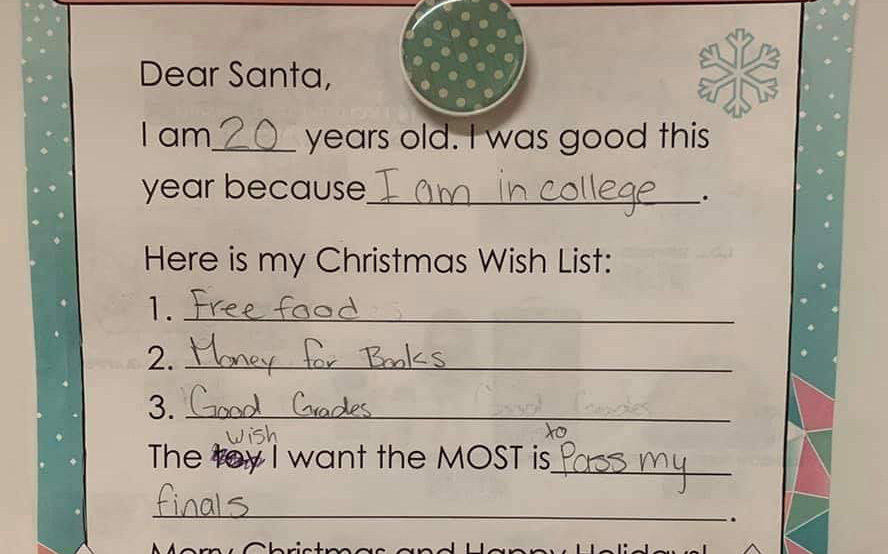 Dear Santa,
I am 20 years old. I was good this
year because I am in college.
Here is my Christmas Wish List:
1. Free food
2. Money for Books
3. Good Grades
wish to
The toy I want the MOST is Pass my
finals.
Merry Christmas and Happy Holidays!